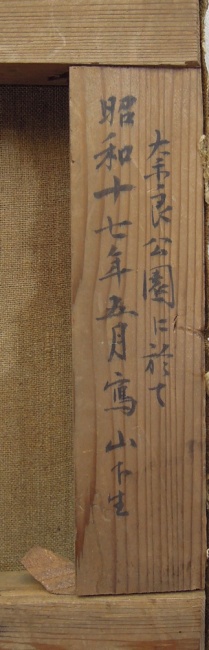 奈良公園に於て
昭和十七年五月寫 山下生